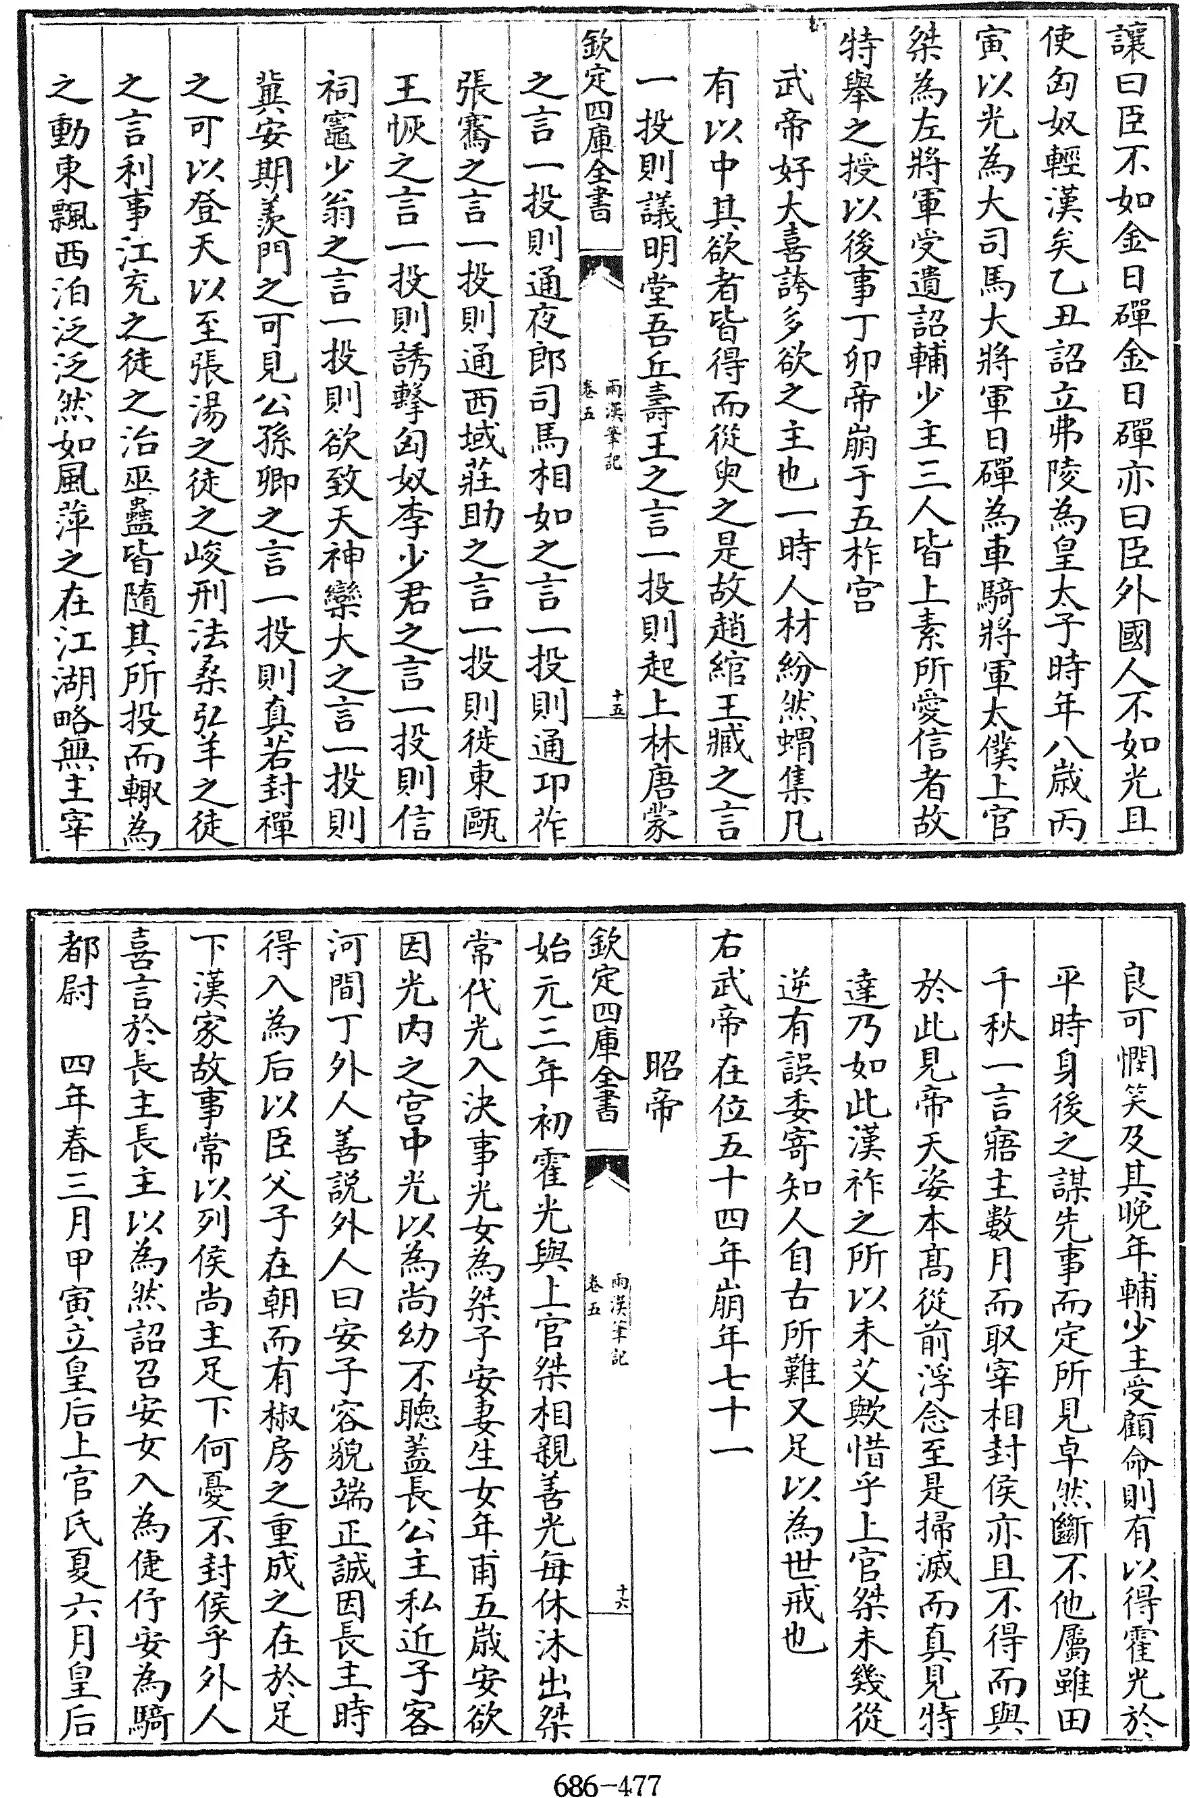 讓曰臣不如金日磾金日磾亦曰臣外國人不如光且
使匈奴輕漢矣乙丑詔立弗陵為皇太子時年八歲丙
寅以光為大司馬大將軍日磾為車騎將軍太僕上官
桀為左將軍受遺詔輔少主三人皆上素所愛信者故
特舉之授以後事丁卯帝崩于五柞宫
武帝好大喜誇多欲之主也一時人材紛然蝟集凡
有以中其欲者皆得而從臾之是故趙綰王臧之言
一投則議明堂吾丘壽王之言一投則起上林唐蒙
欽定四庫全書
兩漢筆記
卷五
十五
之言一投則通夜郎司馬相如之言一投則通卭莋
張騫之言一投則通西域莊助之言一投則徙東甌
王恢之言一投則誘擊匈奴李少君之言一投則信
祠竈少翁之言一投則欲致天神欒大之言一投則
冀安期羨門之可見公孫卿之言一投則真若封禪
之可以登天以至張湯之徒之峻刑法桑弘羊之徒
之言利事江充之徒之治巫蠱皆隨其所投而輙為
之動東飄西泊泛泛然如風萍之在江湖略無主宰
良可憫笑及其晚年輔少主受顧命則有以得霍光於
平時身後之謀先事而定所見卓然斷不他屬雖田
千秋一言寤主數月而取宰相封侯亦且不得而與
於此見帝天姿本髙從前浮念至是掃滅而真見特
達乃如此漢祚之所以未艾歟惜乎上官桀未幾從
逆有誤委寄知人自古所難又足以為世戒也
右武帝在位五十四年崩年七十一
昭帝
欽定四庫全書
兩漢筆記
卷五
十六
始元三年初霍光與上官桀相親善光每休沐出桀
常代光入決事光女為桀子安妻生女年甫五歲安欲
因光内之宫中光以為尚幼不聽蓋長公主私近子客
河間丁外人善說外人曰安子容貌端正誠因長主時
得入為后以臣父子在朝而有椒房之重成之在於足
下漢家故事常以列侯尚主足下何憂不封侯乎外人
喜言於長主長主以為然詔召安女入為倢伃安為騎
都尉　四年春三月甲寅立皇后上官氏夏六月皇后
686-477